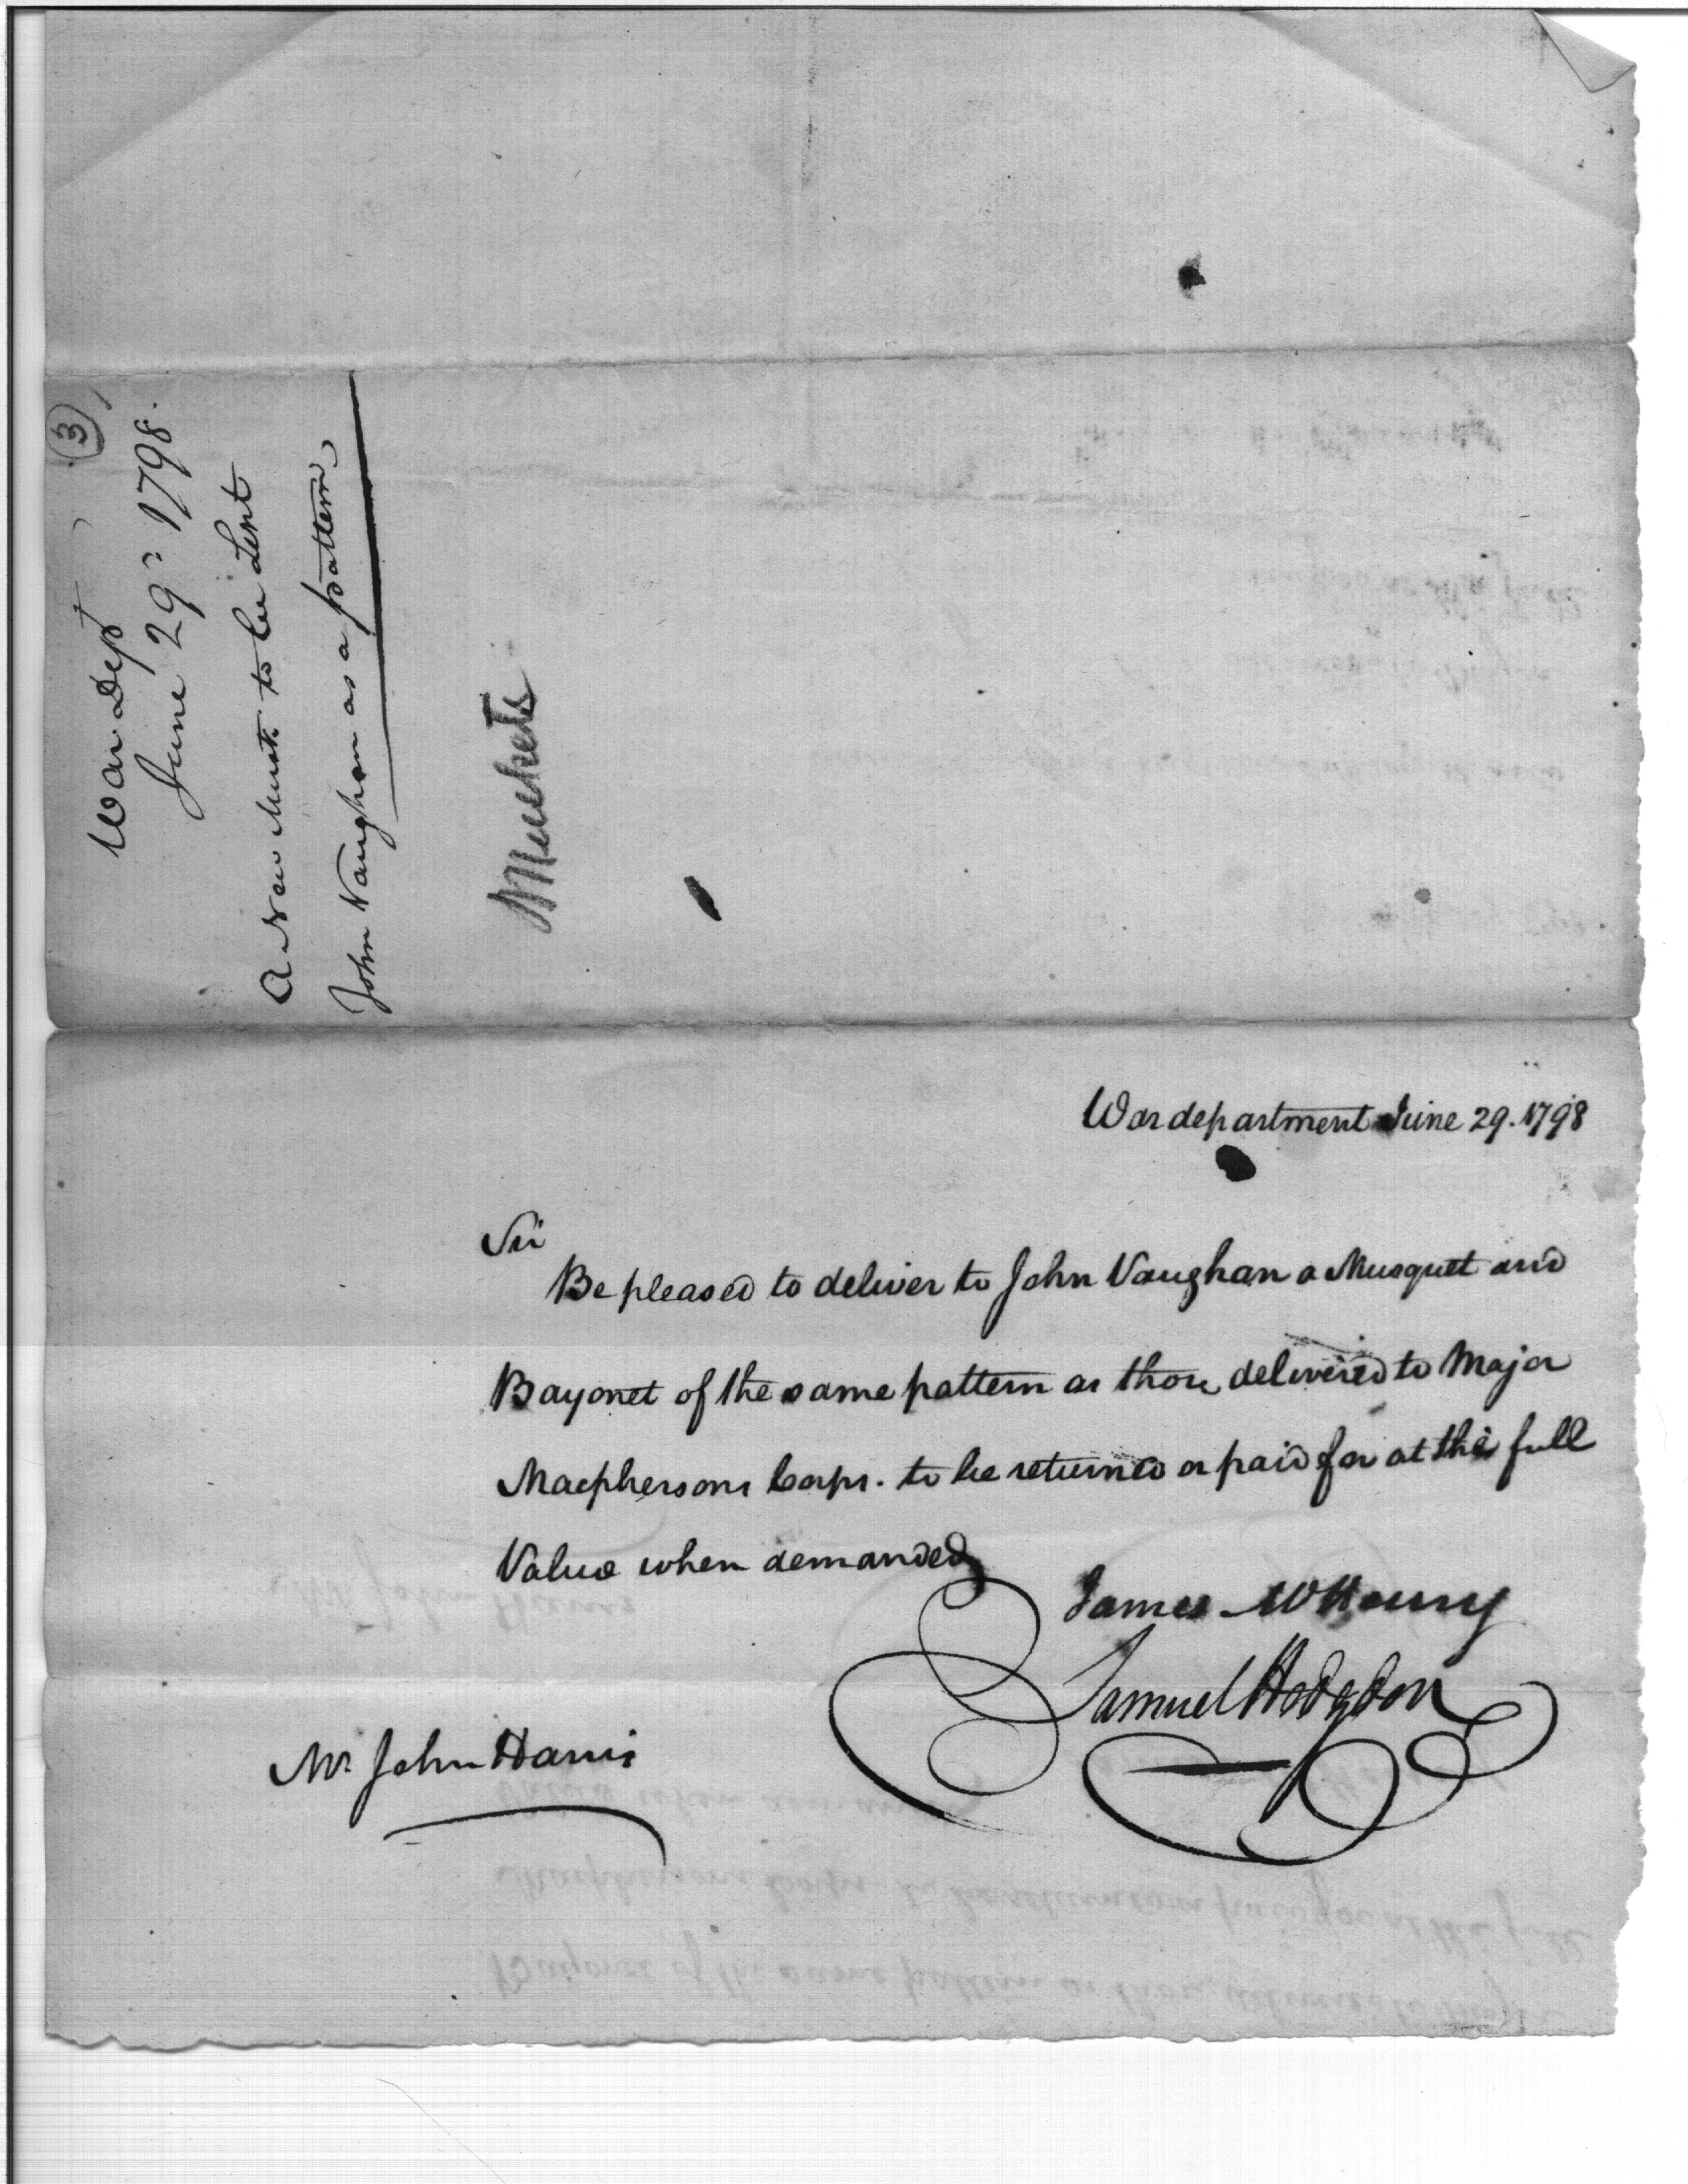 (3)
War Dept
June 29th 1798.
A New Musk. to be Lent
John Vaughan as a pattern
Muskets
War department June 29. 1798
Sir
Be pleased to deliver to John Vaughan a Musquet and
Bayonet of the same pattern as those delivered to Major
Macphersons Corps. to be returned or paid for at the full
Value when demanded
James McHenry
Samuel Hodgdon
Mr. John Harris